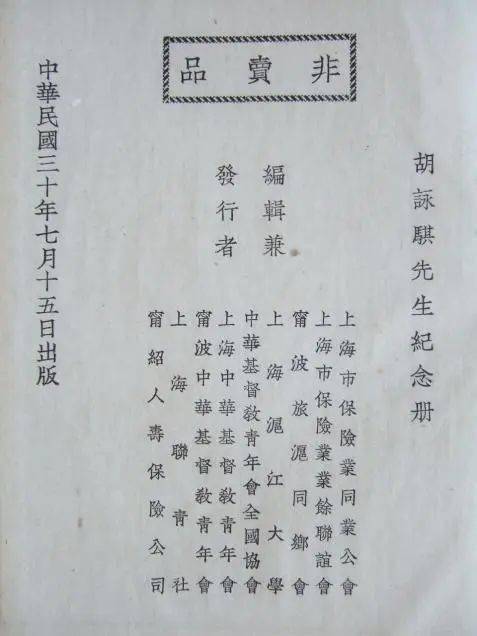 非賣品
胡詠騏先生紀念册
編輯兼
發行者
上海市保險業同業公會
上海市保險業業餘聯誼會
甯波旅滬同鄉會
上海滬江大學
中華基督敎青年會全國協會
上海中華基督敎青年會
甯波中華基督敎青年會
上海聯青社
甯紹人壽保險公司
中華民國三十年七月十五日出版